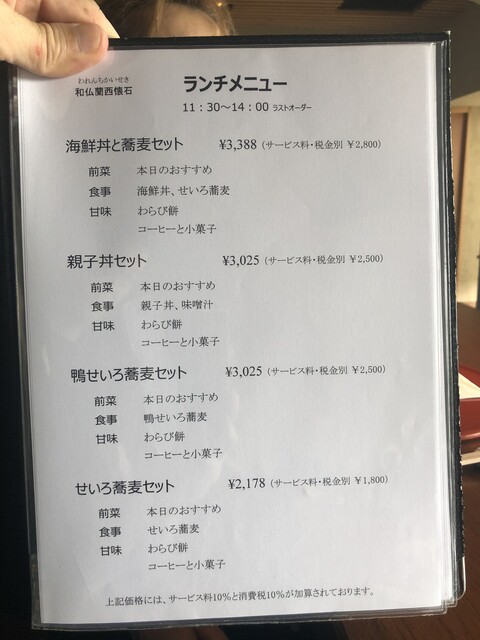 われんちかいせき
和仏蘭西懐石
ランチメニュー
11：30～14：00 ラストオーダー
海鮮丼と蕎麦セット ¥3,388（サービス料・税金別 ¥2,800）
前菜 本日のおすすめ
食事 海鮮丼、せいろ蕎麦
甘味 わらび餅
コーヒーと小菓子
親子丼セット ¥3,025（サービス料・税金別 ¥2,500）
前菜 本日のおすすめ
食事 親子丼、味噌汁
甘味 わらび餅
コーヒーと小菓子
鴨せいろ蕎麦セット ¥3,025（サービス料・税金別 ¥2,500）
前菜 本日のおすすめ
食事 鴨せいろ蕎麦
甘味 わらび餅
コーヒーと小菓子
せいろ蕎麦セット ¥2,178（サービス料・税金別 ¥1,800）
前菜 本日のおすすめ
食事 せいろ蕎麦
甘味 わらび餅
コーヒーと小菓子
上記価格には、サービス料10％と消費税10％が加算されております。